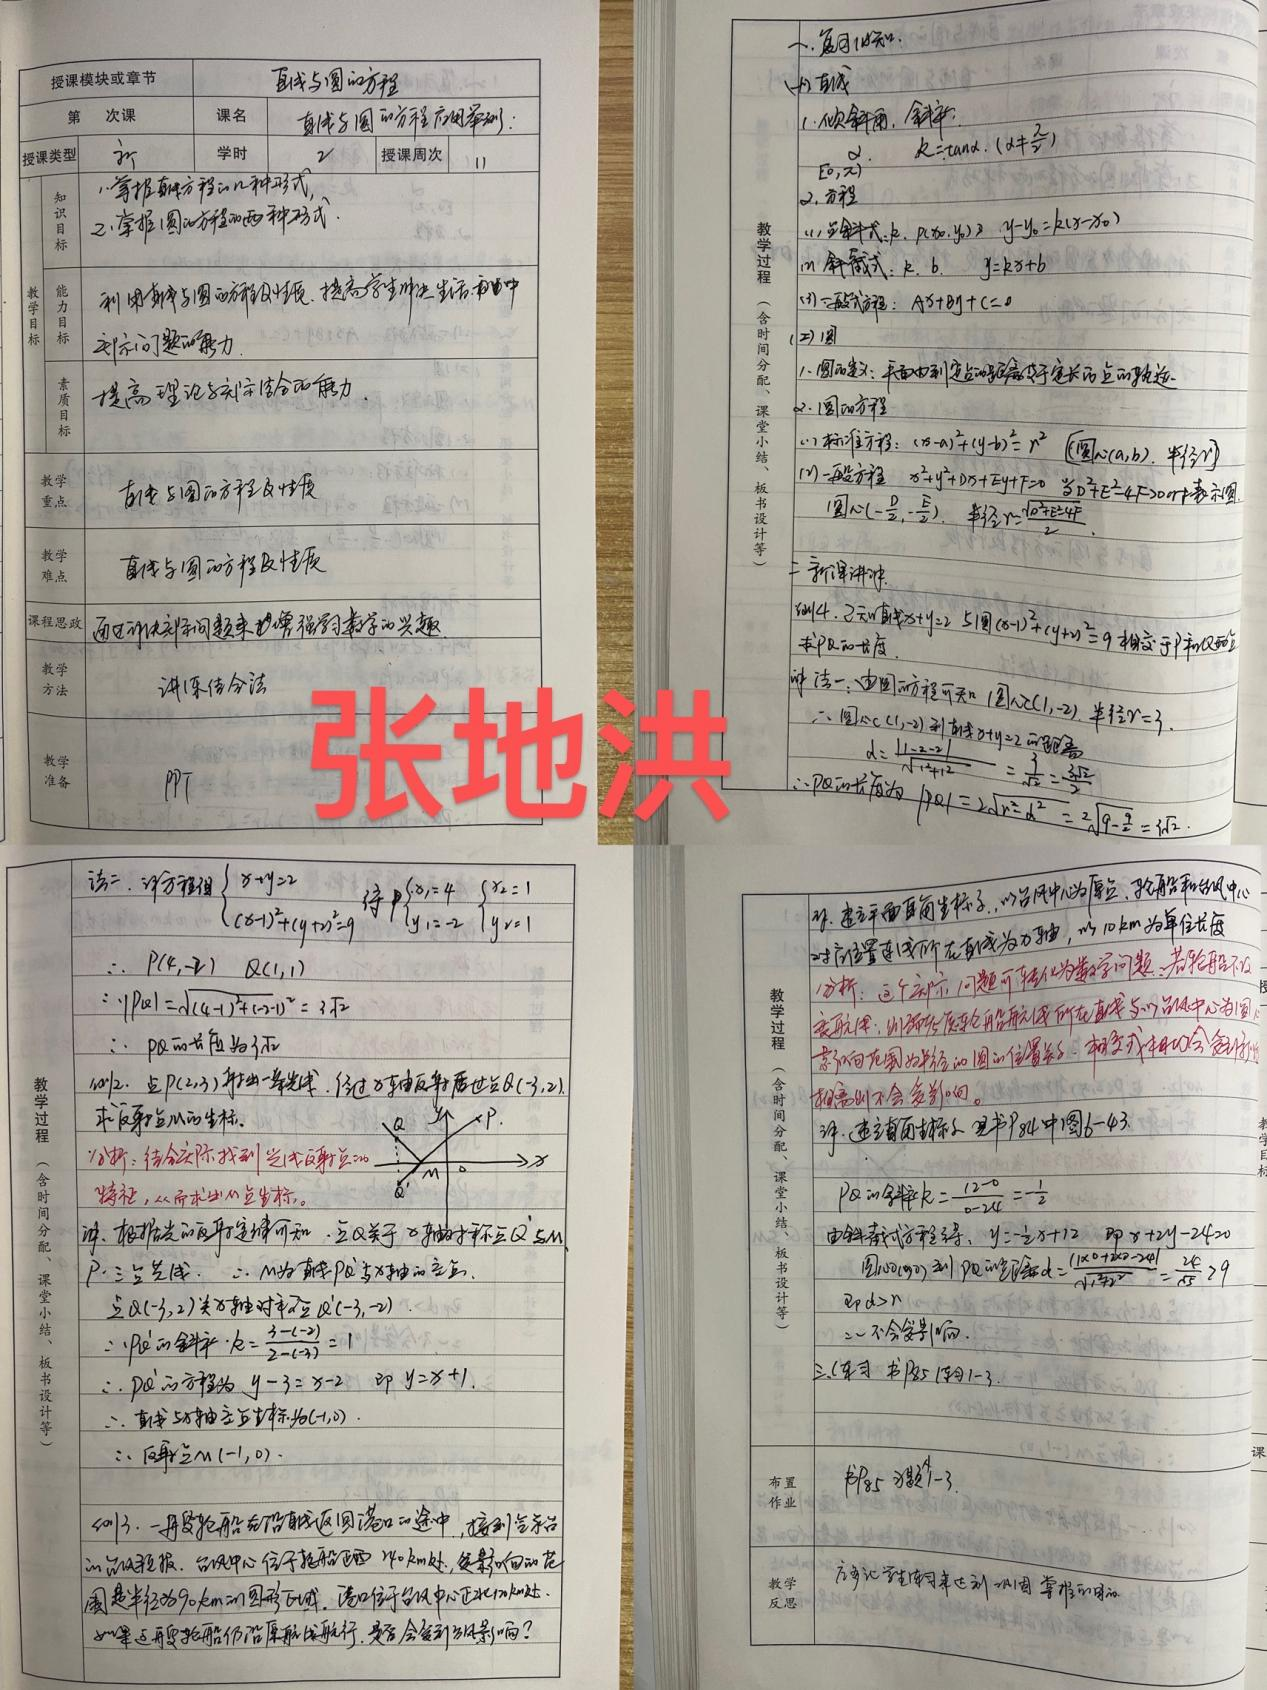 授课模块或章节 直线与圆的方程
第 次课 课名 直线与圆的方程应用举例:
授课类型 新 学时 2 授课周次 11
教学目标
知识目标
1.掌握直线方程的几种形式,
2.掌握圆的方程的两种形式.
能力目标
利用直线与圆的方程及性质.提高学生解决生活.
实际问题的能力.
素质目标
提高理论与实际结合的能力.
教学重点 直线与圆的方程及性质
教学难点 直线与圆的方程及性质
课程思政 通过解决实际问题来增强学习数学的兴趣
教学方法 讲练结合法
教学准备 PPT
张地洪
教学过程(含时间分配、课堂小结、板书设计等)
一.复习旧知.
(一)直线
1.倾斜角.斜率:
α. k=tanα.(α≠π/2)
[0,π)
2.方程
(1)点斜式:k.P(x₀,y₀) y-y₀=k(x-x₀)
(2)斜截式:k.b. y=kx+b
(3)一般式方程: Ax+By+C=0
(二)圆
1.圆的定义:平面内到定点的距离等于定长的点的轨迹.
2.圆的方程
(1)标准方程:(x-a)²+(y-b)²=r² [圆心(a,b).半径r]
(2)一般方程 x²+y²+Dx+Ey+F=0 当D²+E²-4F>0时表示圆.
圆心(-D/2,-E/2). 半径r=√(D²+E²-4F)/2.
二 新课讲解.
例1.已知直线x+y=2与圆(x-1)²+(y+2)²=9相交于P和Q两点
求PQ的长度.
解 法一:由圆的方程可知 圆心C(1,-2) 半径r=3.
∴圆心C(1,-2)到直线x+y=2的距离
d=|1-2-2|/√(1²+1²)=3/√2=3√2/2
∴PQ的长度为|PQ|=2√(r²-d²)=2√(9-9/2)=3√2.
法二.解方程组{x+y=2 (x-1)²+(y+2)²=9 得P{x₁=4 y₁=-2 {x₂=1 y₂=1
∴ P(4,-2) Q(1,1)
∴|PQ|=√(4-1)²+(-2-1)²=3√2
∴ PQ的长度为3√2
教学过程(含时间分配、课堂小结、板书设计等)
例2.点P(2,3)射出一条光线.经过x轴反射后过点Q(-3,2).
求反射点M的坐标.
Q y P. M o x Q'
分析:结合实际找到光线反射点的
特征,从而求出M点坐标。
解.根据光的反射定律可知.点Q关于x轴对称点Q'与M,
P.三点共线. ∴M为直线PQ'与x轴的交点.
点Q(-3,2)关于x轴对称点Q'(-3,-2).
∴PQ'的斜率.k=3-(-2)/2-(-3)=1
∴PQ'的方程为 y-3=x-2 即y=x+1.
∴直线与x轴交点坐标为(-1,0).
∴反射点M(-1,0).
例3.一艘轮船在沿直线返回港口的途中,接到气象台
的台风预报.台风中心位于轮船正西240km处,受影响的范
围是半径为90km的圆形区域.港口位于台风中心正北120km处.
如果这艘轮船仍沿原航线航行.是否会受到台风影响?
解.建立平面直角坐标系.以台风中心为原点.轮船和台风中心
对应位置连线所在直线为x轴,以10km为单位长度
分析:这个实际问题可转化为数学问题.若轮船不改
变航线,则轮船航线所在直线与以台风中心为圆心
影响范围为半径的圆的位置关系.相交或相切会受到影响
相离则不会受影响。
教学过程(含时间分配、课堂小结、板书设计等)
解.建立直角坐标系 见书P84中图6-43.
PQ的斜率k=12-0/0-24=-1/2
由斜截式方程得: y=-1/2x+12 即x+2y-24=0
圆心O(0,0)到PQ的距离d=|1×0+2×0-24|/√(1²+2²)=24/√5>9
即d>r
∴不会受影响.
三.练习 书P85 练习1-3.
布置作业 书P85 习题1-3.
教学反思